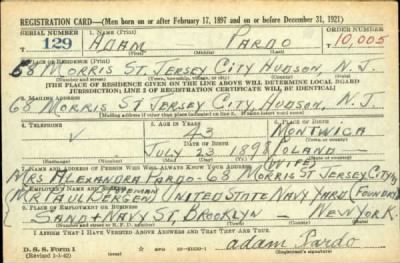 REGISTRATION CARD—(Men born on or after February 17, 1897 and on or before December 31, 1921)
SERIAL NUMBER 1. NAME (Print) ORDER NUMBER
129 ADAM PARDO 10,005
(First) (Middle) (Last)
2. PLACE OF RESIDENCE (Print)
68 MORRIS ST. JERSEY CITY HUDSON N. J.
(Number and street) (Town, township, village, or city) (County) (State)
[THE PLACE OF RESIDENCE GIVEN ON THE LINE ABOVE WILL DETERMINE LOCAL BOARD
JURISDICTION; LINE 2 OF REGISTRATION CERTIFICATE WILL BE IDENTICAL]
3. MAILING ADDRESS
68 MORRIS ST JERSEY CITY, HUDSON, N. J.
[Mailing address if other than place indicated on line 2. If same insert word same]
4. TELEPHONE 5. AGE IN YEARS 6. PLACE OF BIRTH
43 MONTWICA
DATE OF BIRTH
JULY 23 1898 POLAND
(Exchange) (Number) (Mo.) (Day) (Yr.) (State or country)
7. NAME AND ADDRESS OF PERSON WHO WILL ALWAYS KNOW YOUR ADDRESS (WIFE)
MRS ALEXANDRA PARDO-68 MORRIS ST JERSEY CITY
8. EMPLOYER'S NAME AND ADDRESS
MR PAUL BERGEN UNITED STATE NAVY YARD (FOUNDRY)
9. PLACE OF EMPLOYMENT OR BUSINESS
SAND + NAVY ST, BROOKLYN — NEW YORK.
(Number and street or R. F. D. number) (Town) (County) (State)
I AFFIRM THAT I HAVE VERIFIED ABOVE ANSWERS AND THAT THEY ARE TRUE.
D. S. S. Form 1
(Revised 1-1-42)
adam Pardo
(Registrant's signature)